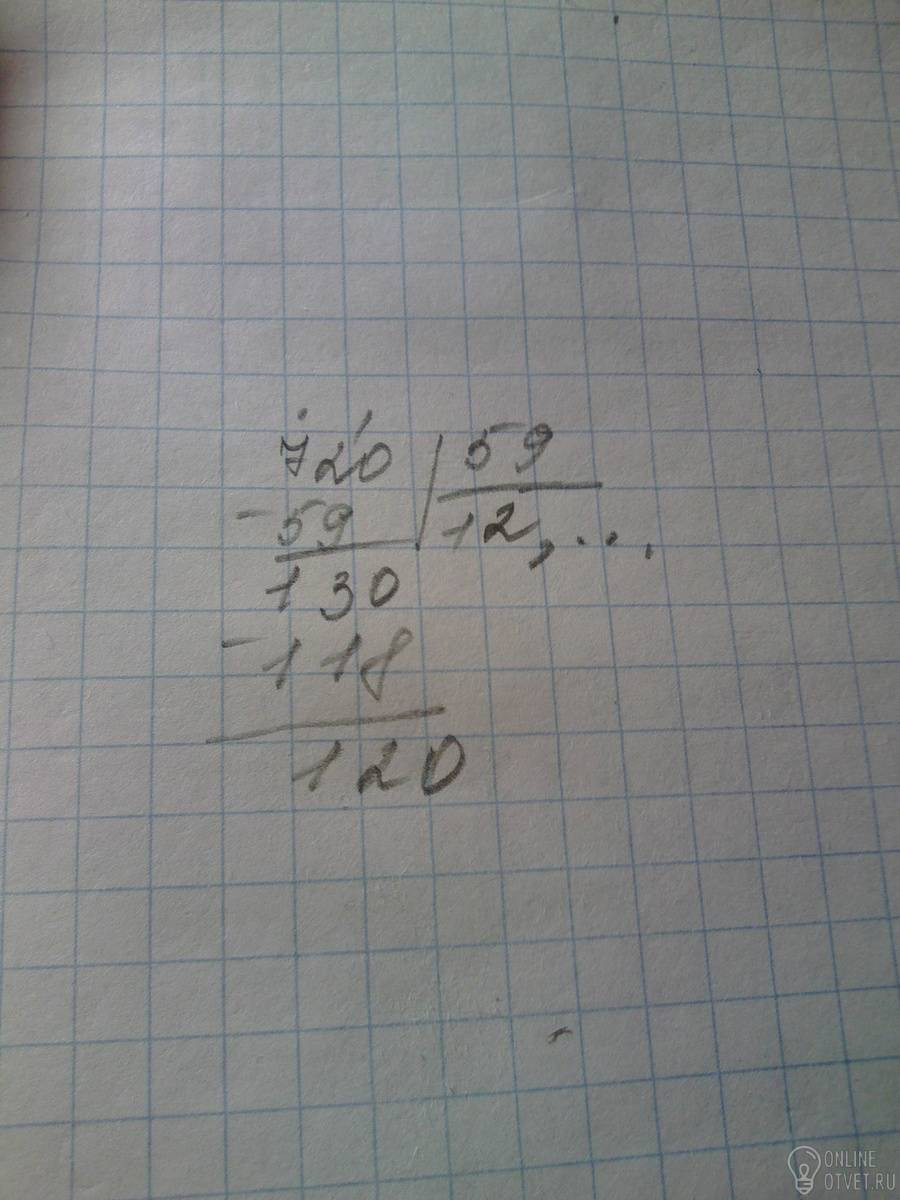 720 | 59
- 59 12,...
130
- 118
120
ONLINE
OTVET.RU